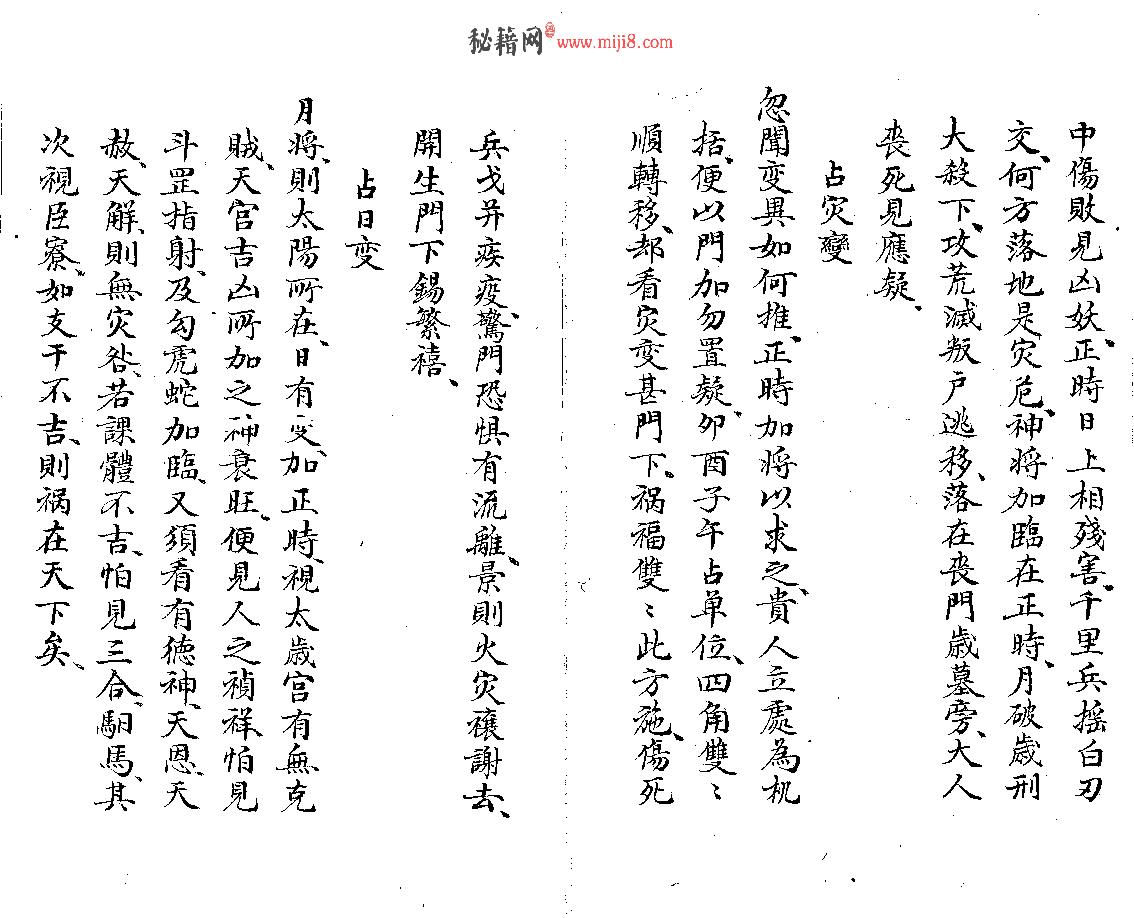 秘籍网 www.miji8.com
中傷敗見凶妖、正時日上相殘害、千里兵摇白刃
交、何方落地是灾危、神将加臨在正時、月破歲刑
大殺下、攻荒滅叛户逃移、落在喪門歲墓旁、大人
喪死見應疑、
占灾變
忽聞变異如何推、正時加将以求之、貴人立處為机
括、便以門加勿置疑、卯酉子午占单位、四角雙〻
順轉移、却看灾变甚門下、祸福雙〻此方施、傷死
兵戈并疾疫、驚門恐惧有流離、景則火灾禳謝去、
開生門下錫繁禧、
占日变
月将、則太陽所在、日有变、加正時、視太歲宫有無克
賊、天官吉凶所加之神衰旺、便見人之禎祥、怕見
斗罡指射、及勾虎蛇加臨、又須看有德神、天恩、天
赦、天解、則無灾咎、若課體不吉、怕見三合、馹馬、其
次視臣寮、如支干不吉、則祸在天下矣、